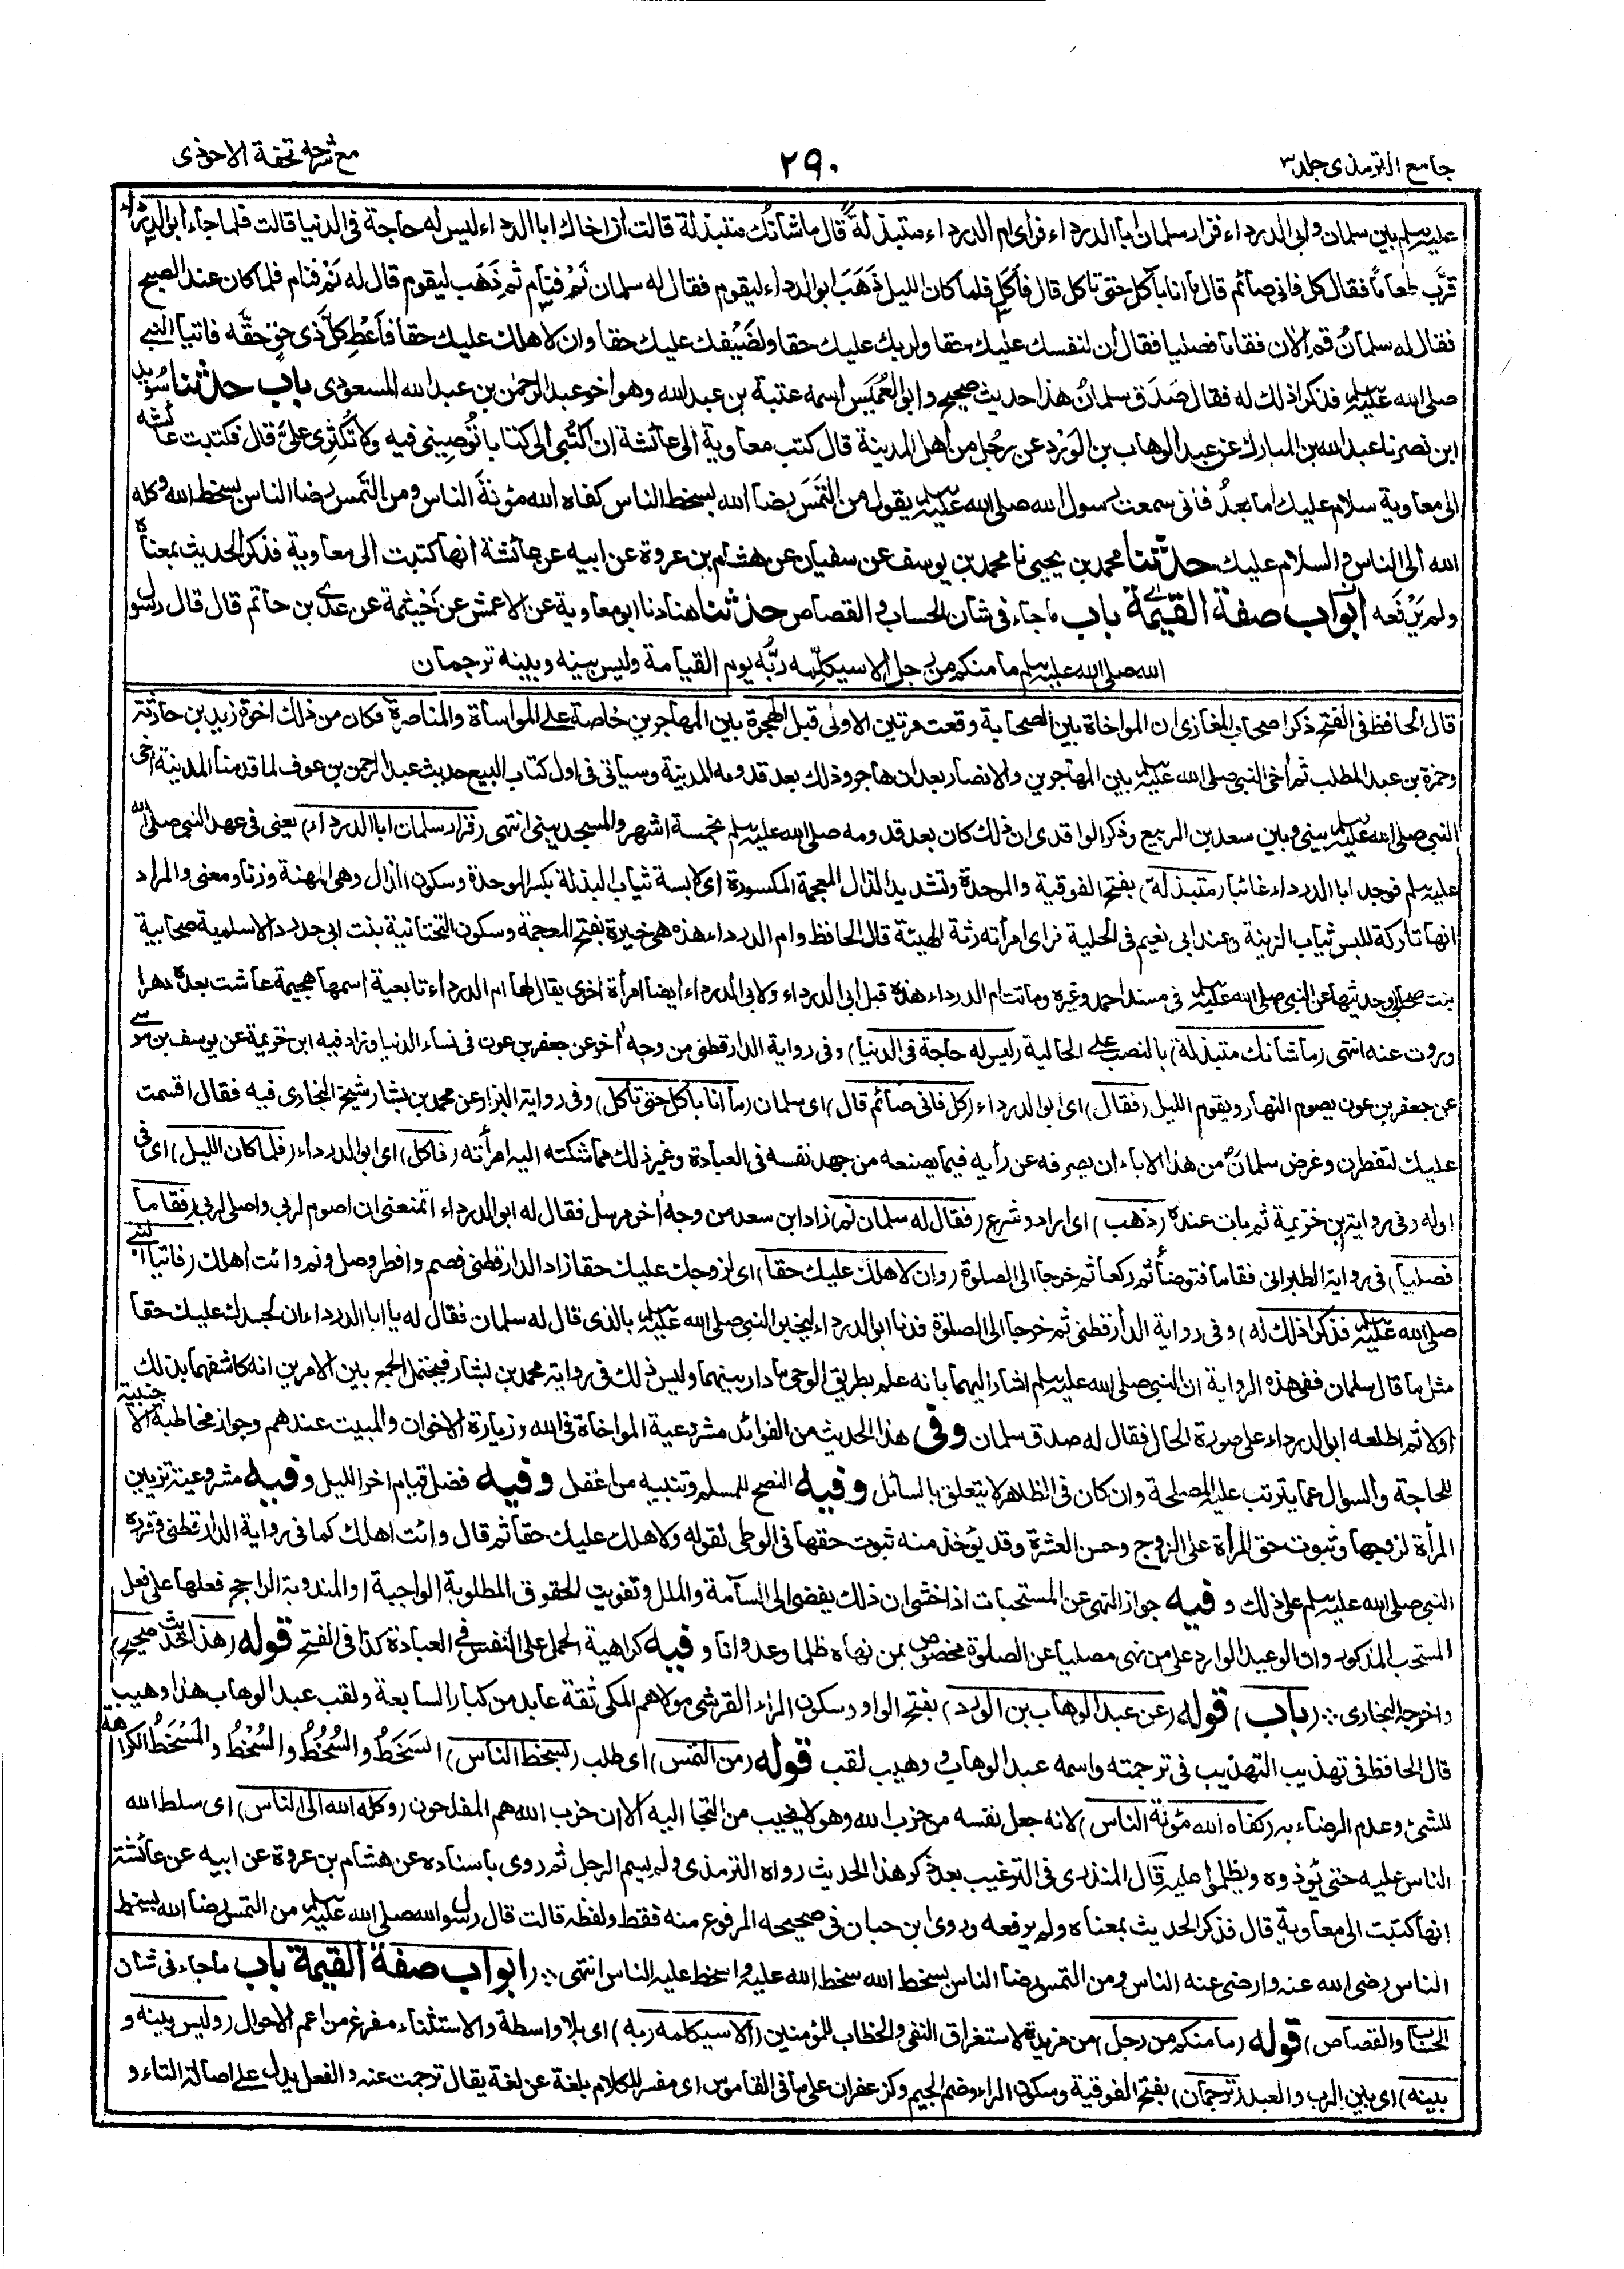 جامع الترمذى جلد ٣
٢٩٠
مع شرحه تحفة الاحوذى
عليه وسلم بين سلمان وابى الدرداء فزار سلمان ابا الدرداء فراى ام الدرداء متبذلة قال ما شانك متبذلة قالت ان اخاك ابا الدرداء ليس له حاجة فى الدنيا قالت فلما جاء ابو الدرداء
قرَّب طعاماً فقال كل فانى صائم قال ما انا بآكل حتى تاكل قال فأكل فلما كان الليل ذَهَبَ ابو الدرداء ليقوم فقال له سلمان نَمْ فنام ثم ذَهَب ليقوم قال له نَمْ فنام فلما كان عند الصبح
فقال له سلمانُ قم الان فقاما فصليا فقال ان لنفسك عليك حقا ولربك عليك حقا ولضَيْفك عليك حقا وان لاهلك عليك حقا فأعْطِ كلَّ ذى حقٍ حقَّه فاتيا النبى
صلى الله عليه وسلم فذكرا ذلك له فقال صَدَق سلمانُ هذا حديث صحيح وابو العُمَيس اسمه عتبة بن عبد الله وهو اخو عبد الرحمٰن بن عبد الله المسعودى باب حدثنا سُويد
ابن نصر نا عبد الله بن المبارك عن عبد الوهاب بن الوَرْد عن رجُل من اهل المدينة قال كتب معاوية الى عائشة ان اكتُبى الى كتابا تُوصِينى فيه ولا تكثِرى علىَّ قال فكتبت عائشه
الى معاوية سلام عليك اما بعدُ فانى سمعت رسول الله صلى الله عليه وسلم يقول من التَمَسَ رضا الله بسخط الناس كفاه الله مؤنةَ الناس ومن التَمس رضا الناس بسخط الله وكله
الله الى الناس والسلام عليك حدثنا محمد بن يحيى نا محمد بن يوسف عن سفيان عن هشام بن عروة عن ابيه عن عائشة انها كتبت الى معاوية فذكر الحديث بمعناه
ولم يَرْفَعه ابواب صفة القيمة باب ما جاء فى شان الحساب والقصاص حدثنا هناد نا ابو معاوية عن الاعمش عن خَيثمة عن عَدى بن حاتم قال قال رسول
الله صلى الله عليه وسلم ما منكم من رجل الا سيكلِّمه ربُّه يوم القيامة وليس بينه وبينه ترجمان
قال الحافظ فى الفتح ذكر اصحاب المغازى ان المواخاة بين الصحابة وقعت مرتين الاولى قبل الهجرة بين المهاجرين خاصة على المواساة والمناصرة فكان من ذلك اخوة زيد بن حارثة
وحمزة بن عبد المطلب ثم آخى النبى صلى الله عليه وسلم بين المهاجرين والانصار بعد ان هاجر وذلك بعد قدومه المدينة وسياتى فى اول كتاب البيع حديث عبد الرحمن بن عوف لما قدمنا المدينة آخى
النبى صلى الله عليه وسلم بينى وبين سعد بن الربيع وذكر الواقدى ان ذلك كان بعد قدومه صلى الله عليه وسلم بخمسة اشهر والمسجد يبنى انتهى (فزار سلمان ابا الدرداء) يعنى فى عهد النبى صلى الله
عليه وسلم فوجد ابا الدرداء غائبا (متبذلة) بفتح الفوقية والموحدة وتشديد الذال المعجمة المكسورة اى لابسة ثياب البذلة بكسر الموحدة وسكون الذال وهى المهنة وزنا ومعنى والمراد
انها تاركة للبس ثياب الزينة وعند ابى نعيم فى الحلية فراى امرأته رثة الهيئة قال الحافظ وام الدرداء هذه هى خيرة بفتح المعجمة وسكون التحتانية بنت ابى حدرد الاسلمية صحابية
بنت صحابى وحديثها عن النبى صلى الله عليه وسلم فى مسند احمد وغيره وماتت ام الدرداء هذه قبل ابى الدرداء ولابى الدرداء ايضا امرأة اخرى يقال لها ام الدرداء تابعية اسمها هجيمة عاشت بعده دهرا
وروت عنه انتهى (ما شانك متبذلة) بالنصب على الحالية (ليس له حاجة فى الدنيا) وفى رواية الدارقطنى من وجه آخر عن جعفر بن عون فى نساء الدنيا وزاد فيه ابن خزيمة عن يوسف بن موسى
عن جعفر بن عون يصوم النهار ويقوم الليل (فقال) اى ابو الدرداء (كل فانى صائم قال) اى سلمان (ما انا بآكل حتى تأكل) وفى رواية البزار عن محمد بن بشار شيخ البخارى فيه فقال اقسمت
عليك لتفطرن وغرض سلمانَ من هذا الاباء ان يصرفه عن رأيه فيما يصنعه من جهد نفسه فى العبادة وغير ذلك مما شكته اليه امرأته (فاكل) اى ابو الدرداء (فلما كان الليل) اى فى
اوله وفى رواية ابن خزيمة ثم بات عنده (ذهب) اى اراد وشرع (فقال له سلمان نم) زاد ابن سعد من وجه آخر مرسل فقال له ابو الدرداء اتمنعنى ان اصوم لربى واصلى لربى (فقاما
فصليا) فى رواية الطبرانى فقاما فتوضأ ثم ركعا ثم خرجا الى الصلوة (وان لاهلك عليك حقا) اى لزوجك عليك حقا زاد الدارقطنى فصم وافطر وصل ونم وائت اهلك (فاتيا النبى
صلى الله عليه وسلم فذكرا ذلك له) وفى رواية الدارقطنى ثم خرجا الى الصلوة فدنا ابو الدرداء ليخبر النبى صلى الله عليه وسلم بالذى قال له سلمان فقال له يا ابا الدرداء ان لجسدك عليك حقا
مثل ما قال سلمان ففى هذه الرواية ان النبى صلى الله عليه وسلم اشار اليهما بانه علم بطريق الوحى ما دار بينهما وليس ذلك فى رواية محمد بن بشار فيحتمل الجمع بين الامرين انه كاشفهما بذلك
اولا ثم اطلعه ابو الدرداء على صورة الحال فقال له صدق سلمان وفى هذا الحديث من الفوائد مشروعية المواخاة فى الله وزيارة الاخوان والمبيت عندهم وجواز مخاطبة الاجنبية
للحاجة والسوال عما يترتب عليه المصلحة وان كان فى الظاهر لا يتعلق بالسائل وفيه النصح للمسلم وتنبيه من اغفل وفيه فضل قيام اخر الليل وفيه مشروعية تزيين
المرأة لزوجها وثبوت حق المرأة على الزوج وحسن العشرة وقد يؤخذ منه ثبوت حقها فى الوطى لقوله ولاهلك عليك حقا ثم قال وائت اهلك كما فى رواية الدارقطنى وقرره
النبى صلى الله عليه وسلم على ذلك وفيه جواز النهى عن المستحبات اذا خشى ان ذلك يفضى الى السآمة والملل وتفويت الحقوق المطلوبة الواجبة او المندوبة الراجح فعلها على فعل
المستحب المذكور وان الوعيد الوارد على من نهى مصليا عن الصلوة مخصوص بمن نهاه ظلما وعدوانا وفيه كراهية الحمل على النفس فى العبادة كذا فى الفتح قوله (هذا حديث صحيح)
واخرجه البخارى (باب) قوله (عن عبد الوهاب بن الورد) بفتح الواو وسكون الراء القرشى مولاهم المكى ثقة عابد من كبار السابعة ولقب عبد الوهاب هذا وهيب
قال الحافظ فى تهذيب التهذيب فى ترجمته واسمه عبد الوهاب ووهيب لقب قوله (من التمس) اى طلب (بسخط الناس) السَخَطُ والسُخُطُ والسُخْطُ والمَسْخَطُ الكراهة
للشئ وعدم الرضاء به (كفاه الله مؤنة الناس) لانه جعل نفسه من حزب الله وهو لا يخيب من التجا اليه الا ان حزب الله هم المفلحون (وكله الله الى الناس) اى سلط الله
الناس عليه حتى يؤذوه ويظلموا عليه قال المنذرى فى الترغيب بعد ذكر هذا الحديث رواه الترمذى ولم يسم الرجل ثم روى باسناده عن هشام بن عروة عن ابيه عن عائشة
انها كتبت الى معاوية قال فذكر الحديث بمعناه ولم يرفعه وروى ابن حبان فى صحيحه المرفوع منه فقط ولفظه قالت قال رسول الله صلى الله عليه وسلم من التمس رضا الله بسخط
الناس رضى الله عنه وارضى عنه الناس ومن التمس رضا الناس بسخط الله سخط الله عليه واسخط عليه الناس انتهى (ابواب صفة القيمة باب ما جاء فى شان
الحساب والقصاص) قوله (ما منكم من رجل) من مزيدة لاستغراق النفى والخطاب للمؤمنين (الا سيكلمه ربه) اى بلا واسطة والاستثناء مفرغ من اعم الاحوال (وليس بينه و
بينه) اى بين الرب والعبد (ترجمان) بفتح الفوقية وسكون الراء وضم الجيم وكزعفران على ما فى القاموس اى مفسر للكلام بلغة عن لغة يقال ترجمت عنه والفعل يدل على اصالة التاء و